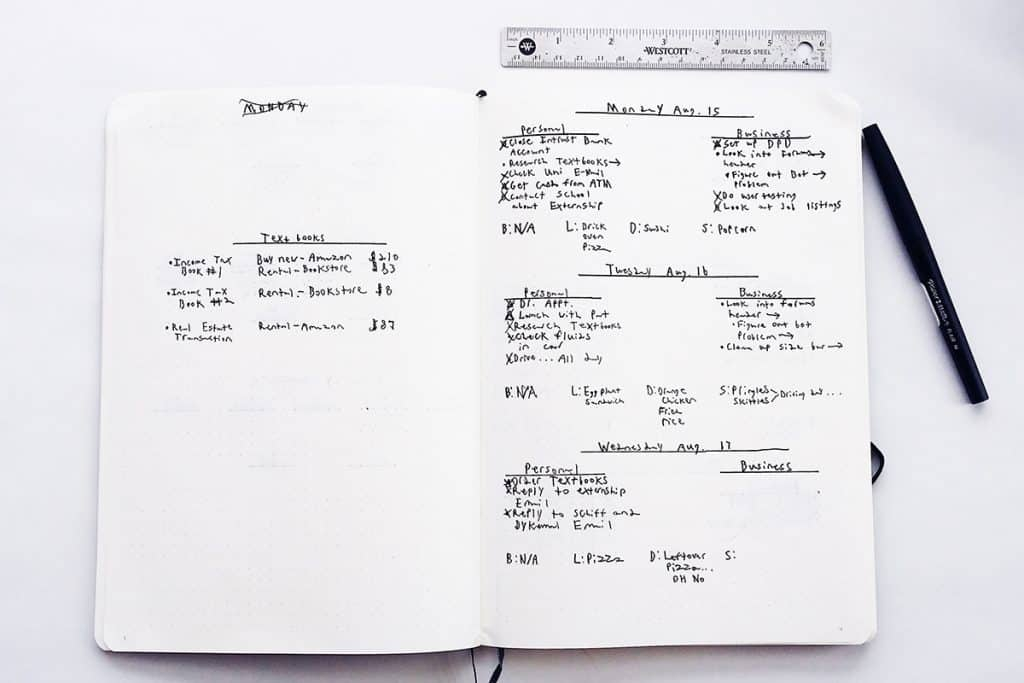 MONDAY
Textbooks
• Income Tax Book #1 Buy new - Amazon $210
Rental - Bookstore $83
• Income Tax Book #2 Rental - Bookstore $8
• Real Estate Transaction Rental - Amazon $87
1 2 3 4 5 6
W WESTCOTT STAINLESS STEEL
Monday Aug. 15
Personal
X Close Intrust Bank
Account
• Research Textbooks →
X Check Uni E-mail
X Get cash from ATM
X Contact School
about Externship
Business
X Set up DPD
• Look into Forums →
header
• Figure out Bot →
problem
X Do user testing
X Look at Job listings
B: N/A L: Brick
oven
Pizza
D: Sushi S: Popcorn
Tuesday Aug. 16
Personal
X Dr. Appt.
Lunch with Pat
X Research Textbooks
X Check fluids
in car
X Drive... All day
Business
• Look into forums
header →
• Figure out bot
problem →
• Clean up size bar →
B: N/A L: Eggplant
Sandwich
D: Orange
Chicken
Fried
rice
S: Pringles
Skittles > Driving day...
Wednesday Aug. 17
Personal
X Order Textbooks
X Reply to externship
Email
X Reply to Schiff and
Email
Business
B: N/A L: Pizza D: Leftover
Pizza...
OH NO
S: